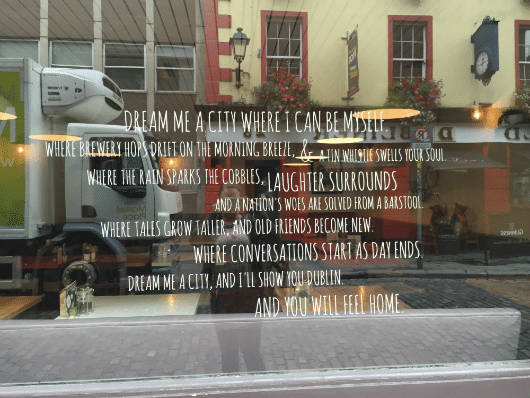 DREAM ME A CITY WHERE I CAN BE MYSELF.
WHERE BREWERY HOPS DRIFT ON THE MORNING BREEZE, & A TIN WHISTLE SWELLS YOUR SOUL.
WHERE THE RAIN SPARKS THE COBBLES, LAUGHTER SURROUNDS
AND A NATION'S WOES ARE SOLVED FROM A BARSTOOL.
WHERE TALES GROW TALLER, AND OLD FRIENDS BECOME NEW.
WHERE CONVERSATIONS START AS DAY ENDS.
DREAM ME A CITY, AND I'LL SHOW YOU DUBLIN.
AND YOU WILL FEEL HOME.